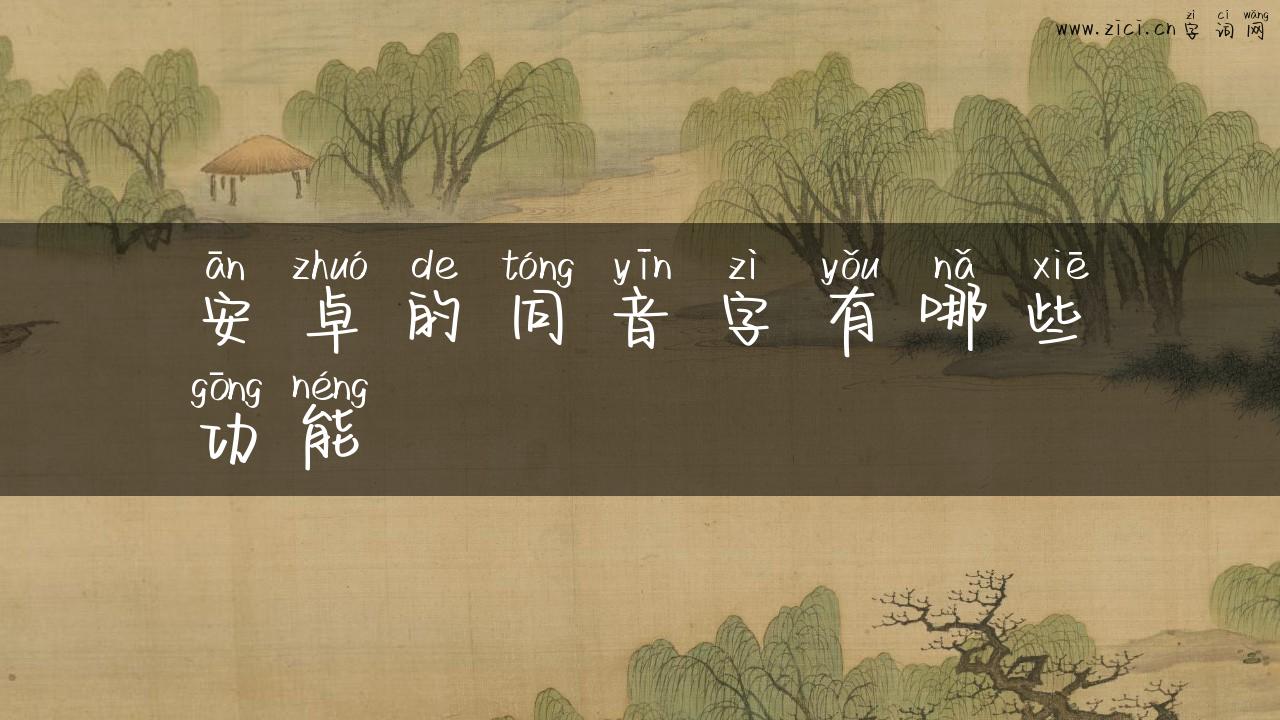 zì cí wǎng
www.zici.cn 字 词 网
ān zhuó de tóng yīn zì yǒu nǎ xiē
安 卓 的 同 音 字 有 哪 些
gōng néng
功 能